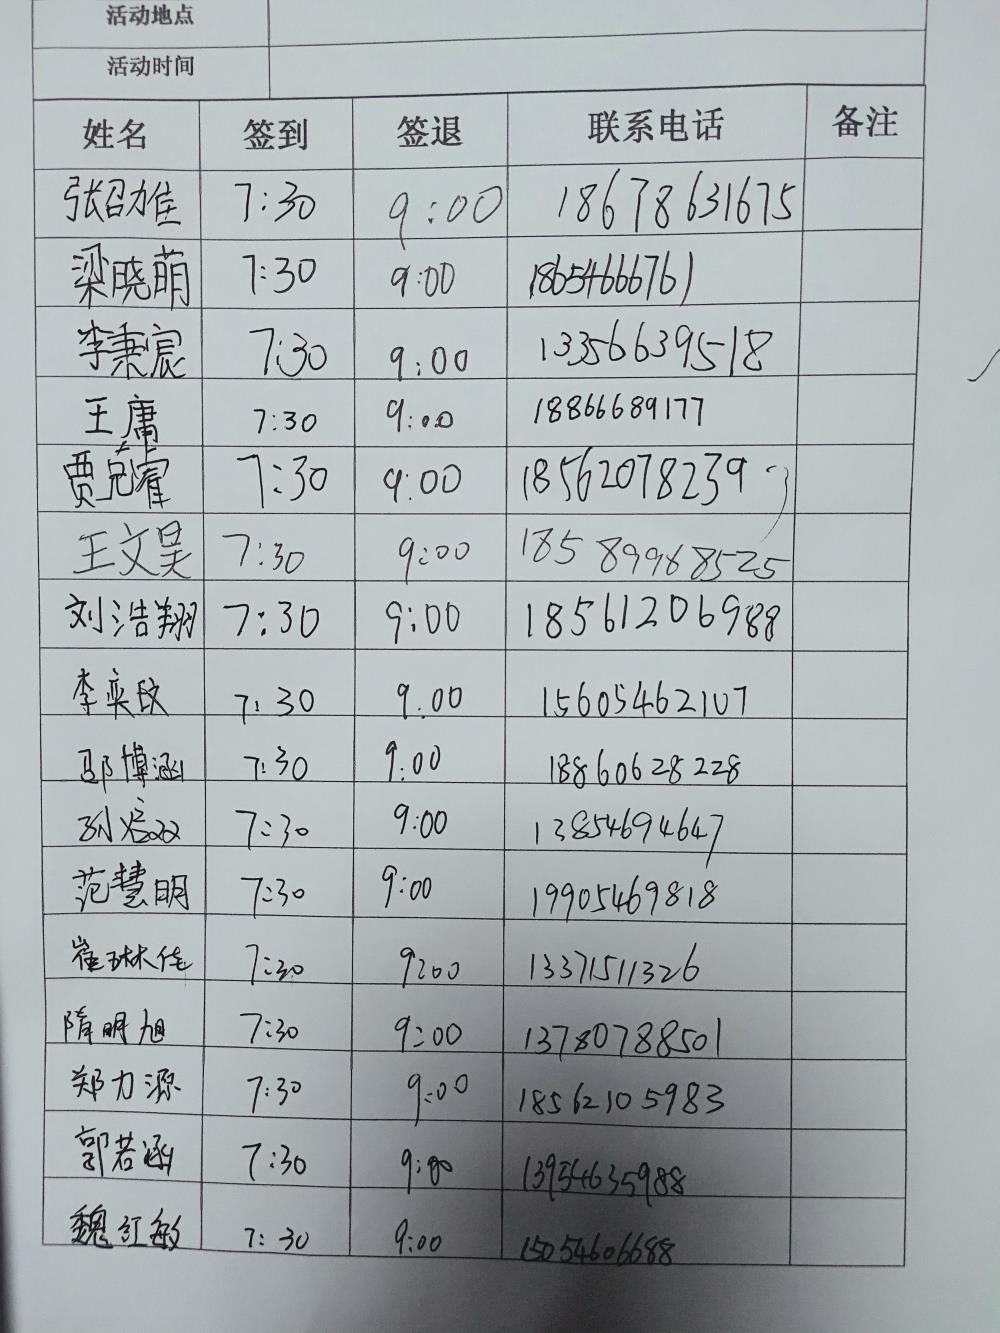 活动地点
活动时间
姓名 签到 签退 联系电话 备注
张召佳 7:30 9:00 18678631675
梁晓萌 7:30 9:00 18654666761
李秉宸 7:30 9:00 13356639518
王庸 7:30 9:00 18866689177
贾克睿 7:30 9:00 18562078239
王文昊 7:30 9:00 18589968525
刘浩翔 7:30 9:00 18561206988
李奕玟 7:30 9:00 15605462107
邵博涵 7:30 9:00 18860628228
孙焙焱 7:30 9:00 13854694647
范慧明 7:30 9:00 19905469818
崔琳佳 7:30 9:00 13371511326
隋明旭 7:30 9:00 13780788501
郑力源 7:30 9:00 18562105983
郭若涵 7:30 9:00 13954635988
魏红敏 7:30 9:00 15054606688